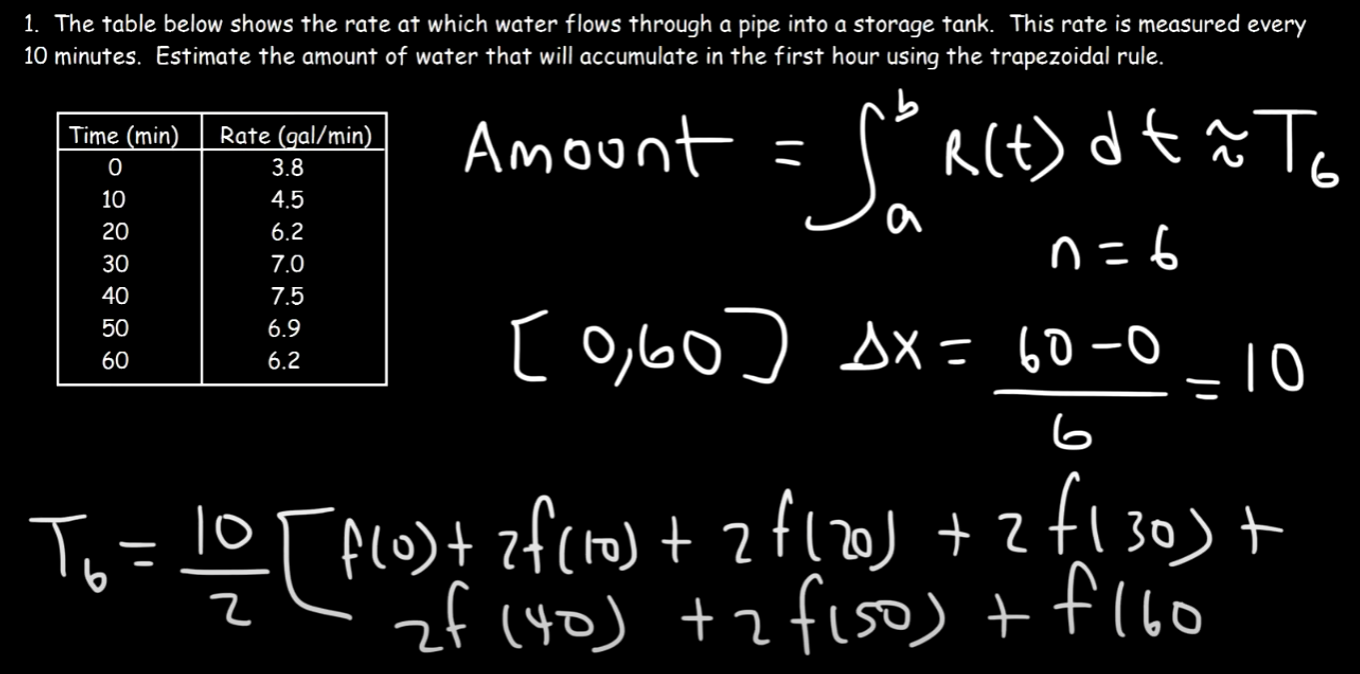 1. The table below shows the rate at which water flows through a pipe into a storage tank. This rate is measured every
10 minutes. Estimate the amount of water that will accumulate in the first hour using the trapezoidal rule.
Time (min) Rate (gal/min)
0 3.8
10 4.5
20 6.2
30 7.0
40 7.5
50 6.9
60 6.2
Amount = ∫ₐᵇ R(t) dt ≈ T₆
n = 6
[0,60] Δx = (60-0)/6 = 10
T₆ = 10/2 [f(0) + 2f(10) + 2f(20) + 2f(30) +
2f(40) + 2f(50) + f(60